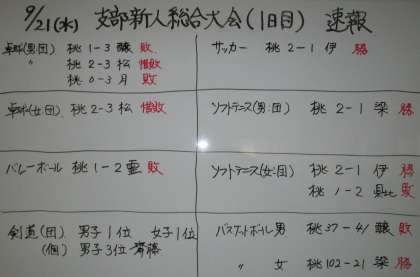 9/21(水) 支部新人総合大会(1日目) 速報
卓球(男団) 桃 1-3 醸 敗
〃 桃 2-3 松 惜敗
桃 0-3 月 敗
卓球(女団) 桃 2-3 松 惜敗
バレーボール 桃 1-2 霊 敗
剣道(団) 男子1位 女子1位
(個) 男子3位 齊藤
サッカー 桃 2-1 伊 勝
ソフトテニス(男:団) 桃 2-1 梁 勝
ソフトテニス(女:団) 桃 2-1 伊 勝
桃 1-2 県北 敗
バスケットボール 男 桃 37-41 醸 敗
〃 女 桃 102-21 梁 勝